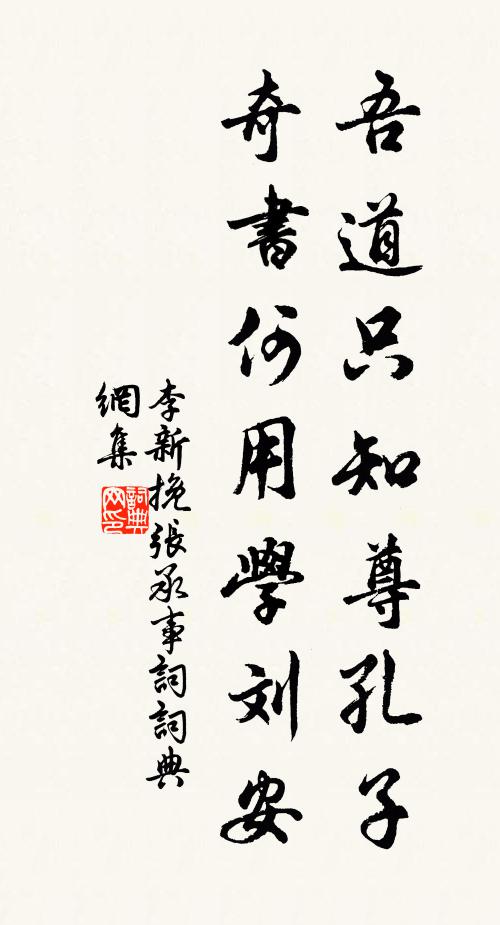 吾道只知尊孔子
奇書何用學刘安
李新挽張承事詞詞典
網集
詞典
网印